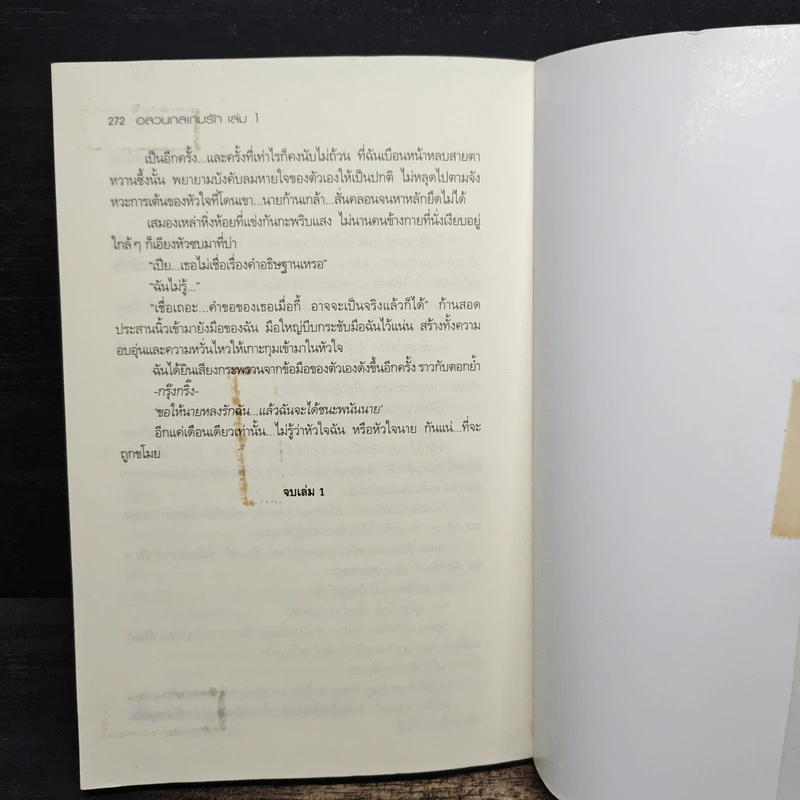 272 อลวนกลเกมรัก เล่ม 1
เป็นอีกครั้ง...และครั้งที่เท่าไรก็คงนับไม่ถ้วน ที่ฉันเบือนหน้าหลบสายตา
หวานซึ้งนั้น พยายามบังคับลมหายใจของตัวเองให้เป็นปกติ ไม่หลุดไปตามจัง
หวะการเต้นของหัวใจที่โดนเขา...นายก้านเกล้า...สั่นคลอนจนหาหลักยึดไม่ได้
เสมองเหล่าหิ่งห้อยที่แข่งกันกะพริบแสง ไม่นานคนข้างกายที่นั่งเงียบอยู่
ใกล้ๆ ก็เอียงหัวซบมาที่บ่า
“เปีย...เธอไม่เชื่อเรื่องคำอธิษฐานเหรอ”
“ฉันไม่รู้...”
“เชื่อเถอะ...คำขอของเธอเมื่อกี้ อาจจะเป็นจริงแล้วก็ได้” ก้านสอด
ประสานนิ้วเข้ามายังมือของฉัน มือใหญ่บีบกระชับมือฉันไว้แน่น สร้างทั้งความ
อบอุ่นและความหวั่นไหวให้เกาะกุมเข้ามาในหัวใจ
ฉันได้ยินเสียงกระพรวนจากข้อมือของตัวเองดังขึ้นอีกครั้ง ราวกับตอกย้ำ
-กรุ๊งกริ๊ง-
‘ขอให้นายหลงรักฉัน...แล้วฉันจะได้ชนะพนันนาย’
อีกแค่เดือนเดียวเท่านั้น...ไม่รู้ว่าหัวใจฉัน หรือหัวใจนาย กันแน่...ที่จะ
ถูกขโมย
จบเล่ม 1